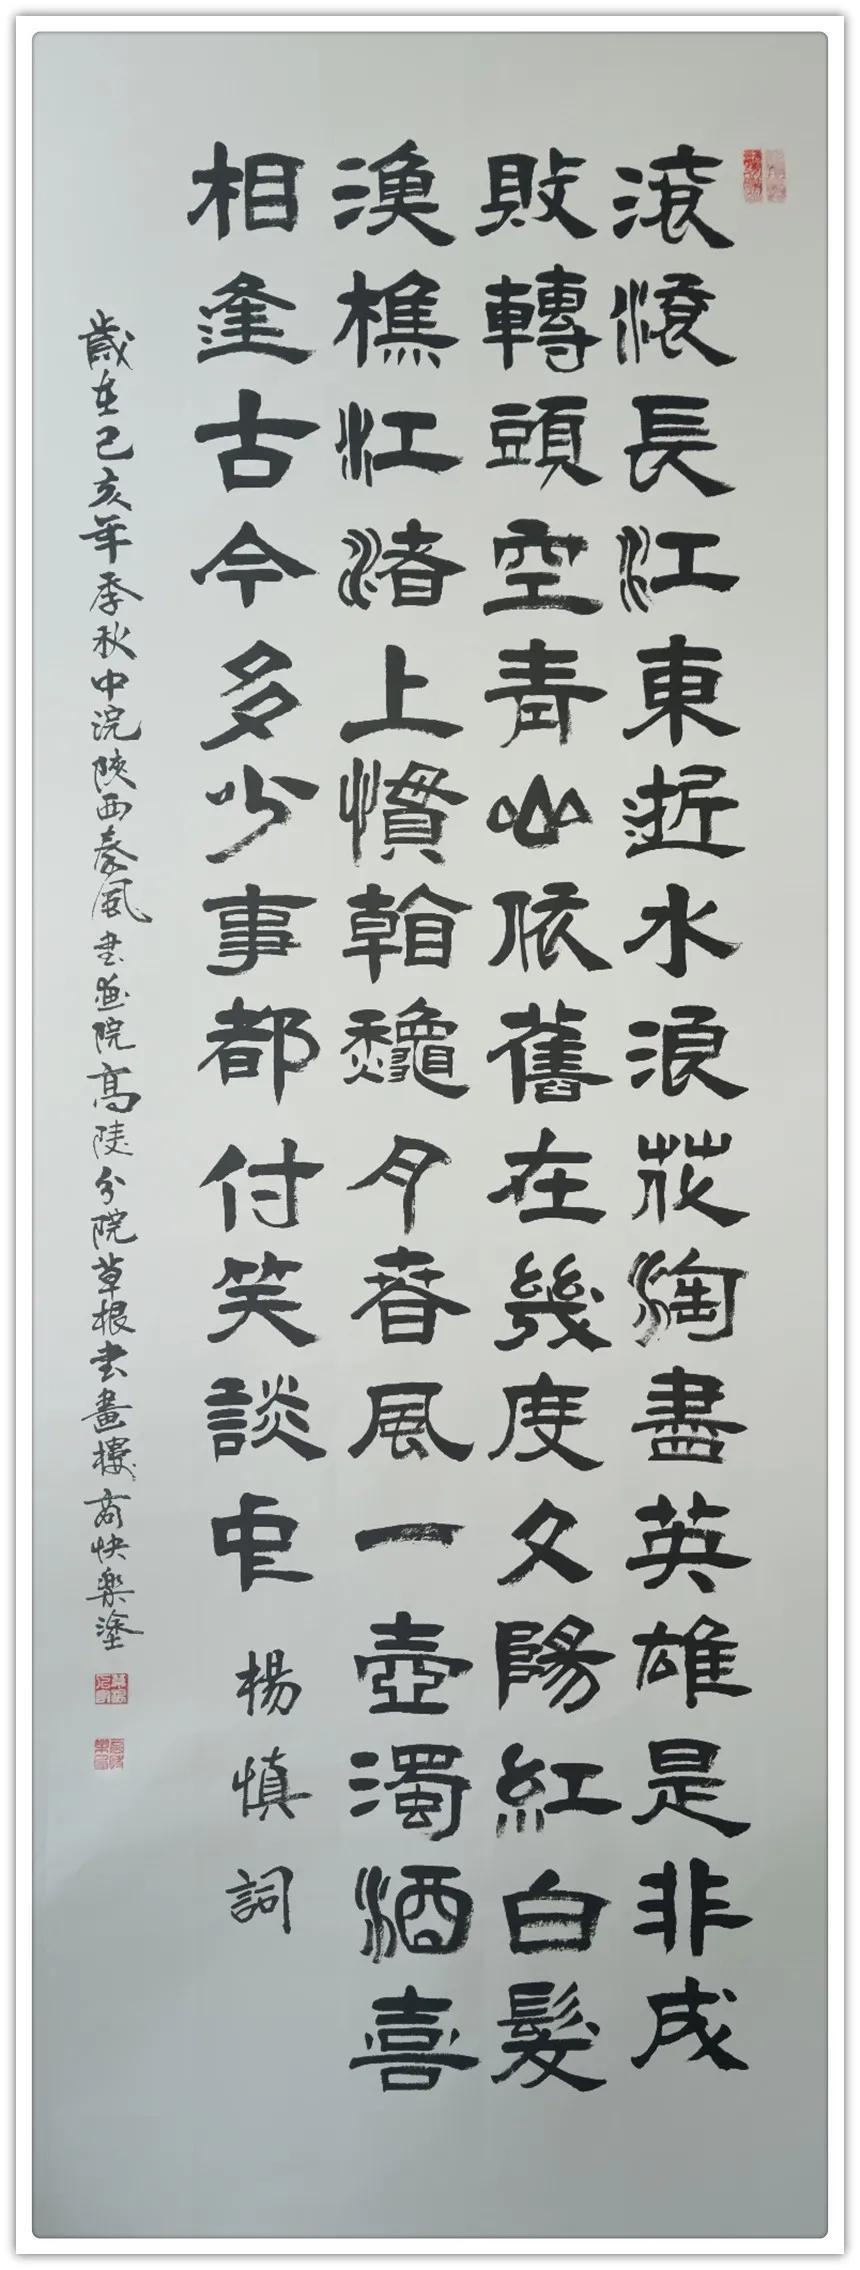 滾滾長江東逝水浪花淘盡英雄是非成
敗轉頭空青山依舊在幾度夕陽紅白髮
漁樵江渚上慣看龝月春風一壺濁酒喜
相逢古今多少事都付笑談中 楊慎詞
歲在己亥年季秋中浣陝西秦風書画院高陵分院草根書畫樓商快樂塗